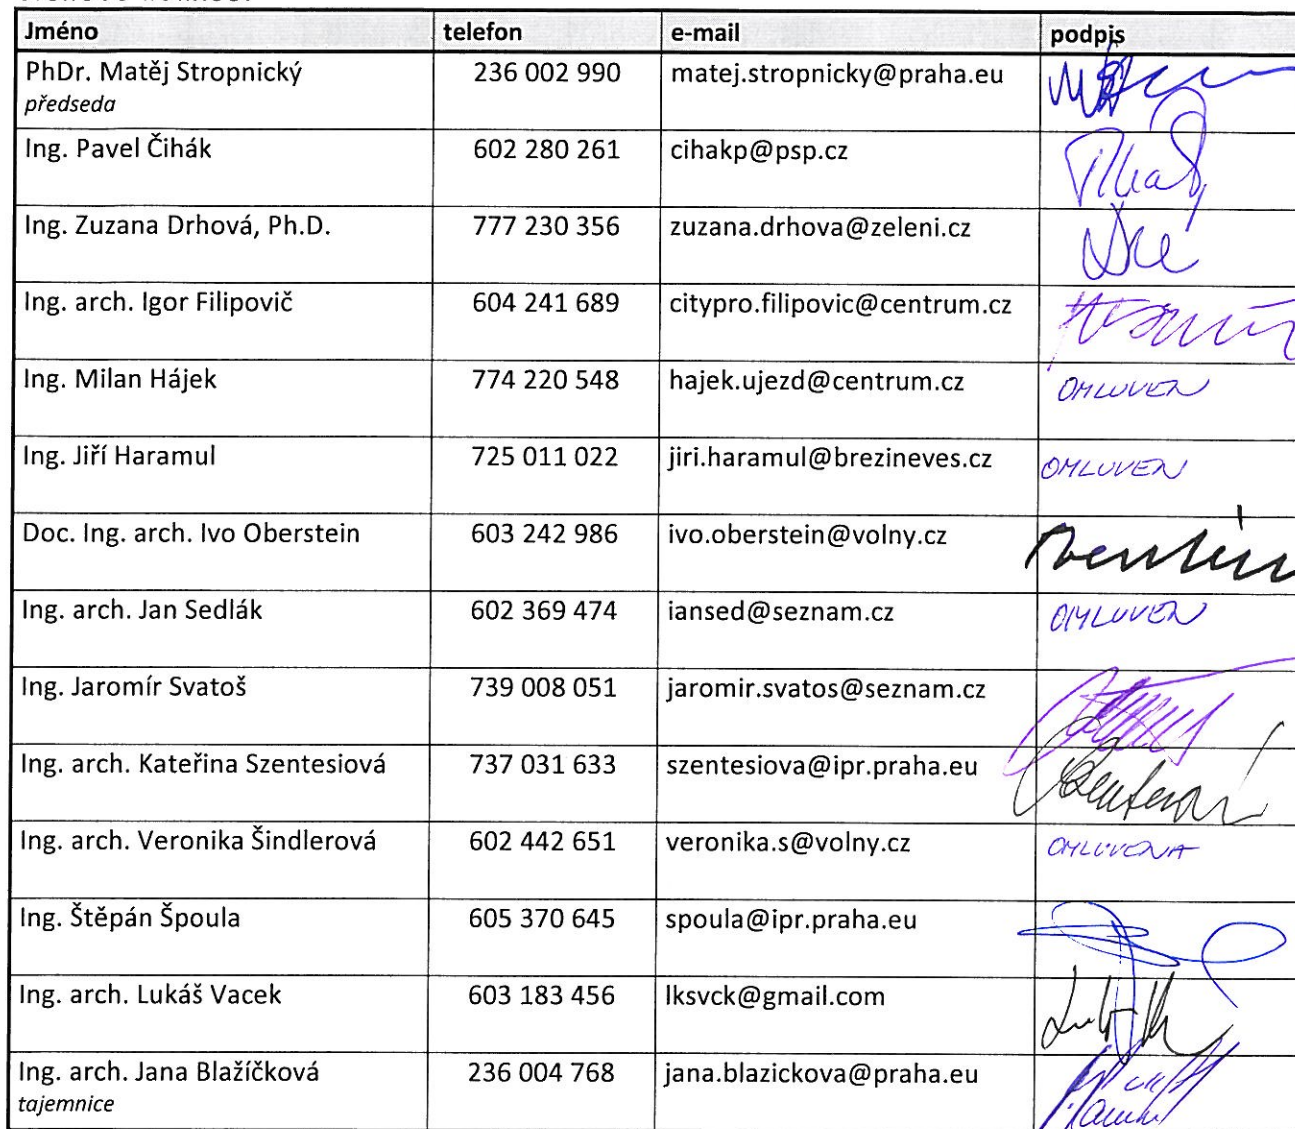 Jméno telefon e-mail podpis
PhDr. Matěj Stropnický 236 002 990 matej.stropnicky@praha.eu
předseda
Ing. Pavel Čihák 602 280 261 cihakp@psp.cz
Ing. Zuzana Drhová, Ph.D. 777 230 356 zuzana.drhova@zeleni.cz
Ing. arch. Igor Filipovič 604 241 689 citypro.filipovic@centrum.cz
Ing. Milan Hájek 774 220 548 hajek.ujezd@centrum.cz OMLUVEN
Ing. Jiří Haramul 725 011 022 jiri.haramul@brezineves.cz OMLUVEN
Doc. Ing. arch. Ivo Oberstein 603 242 986 ivo.oberstein@volny.cz
Ing. arch. Jan Sedlák 602 369 474 iansed@seznam.cz OMLUVEN
Ing. Jaromír Svatoš 739 008 051 jaromir.svatos@seznam.cz
Ing. arch. Kateřina Szentesiová 737 031 633 szentesiova@ipr.praha.eu
Ing. arch. Veronika Šindlerová 602 442 651 veronika.s@volny.cz OMLUVENA
Ing. Štěpán Špoula 605 370 645 spoula@ipr.praha.eu
Ing. arch. Lukáš Vacek 603 183 456 lksvck@gmail.com
Ing. arch. Jana Blažíčková 236 004 768 jana.blazickova@praha.eu
tajemnice